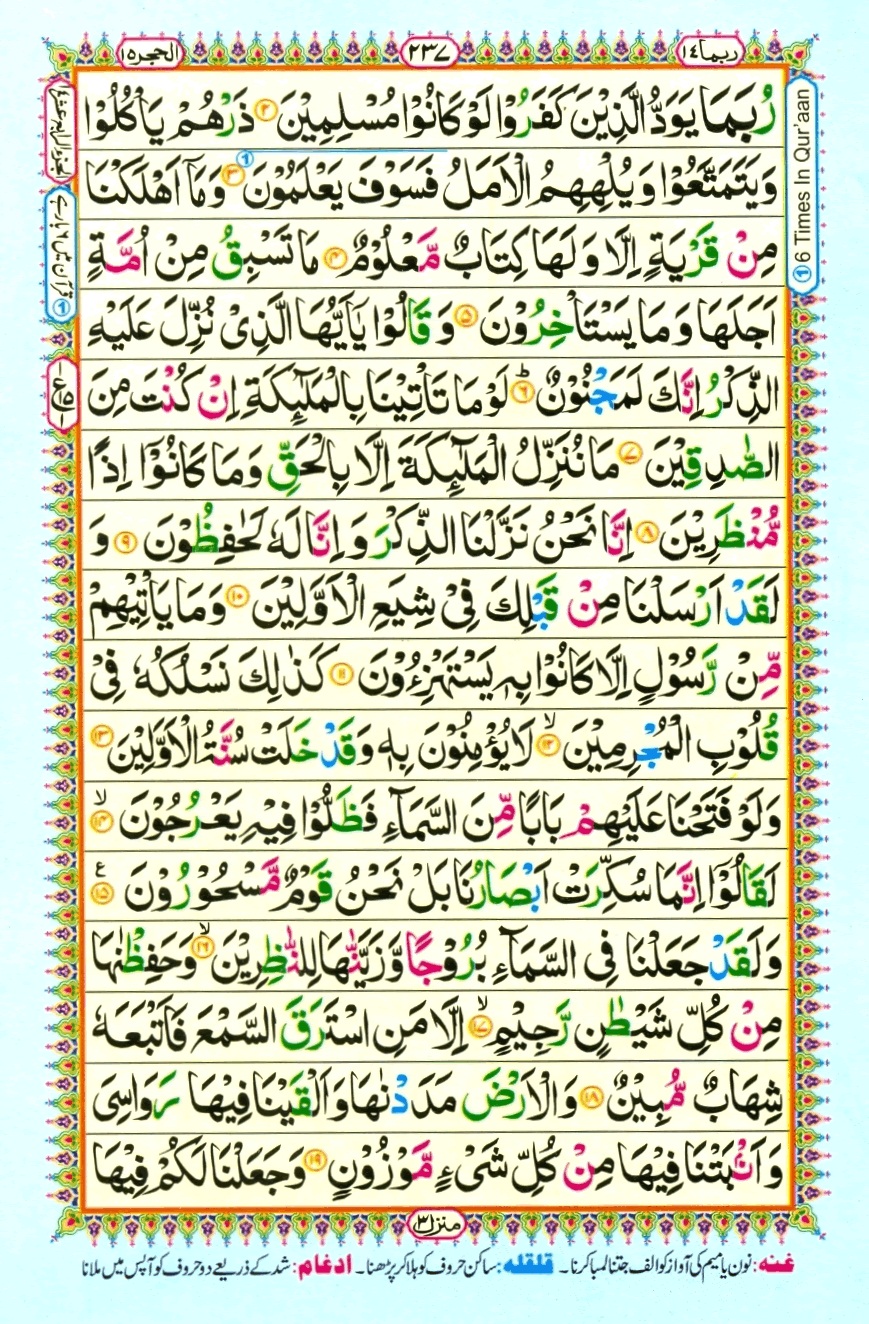 ربما ١٤
٢٣٧
الحجر ١٥
رُبَمَا يَوَدُّ الَّذِيْنَ كَفَرُوْا لَوْ كَانُوْا مُسْلِمِيْنَ ۲ ذَرْهُمْ يَاْكُلُوْا
وَيَتَمَتَّعُوْا وَيُلْهِهِمُ الْاَمَلُ فَسَوْفَ يَعْلَمُوْنَ ۳ وَمَاۤ اَهْلَكْنَا
مِنْ قَرْيَةٍ اِلَّا وَلَهَا كِتَابٌ مَّعْلُوْمٌ ۴ مَا تَسْبِقُ مِنْ اُمَّةٍ
اَجَلَهَا وَمَا يَسْتَاْخِرُوْنَ ۵ وَقَالُوْا يٰۤاَيُّهَا الَّذِيْ نُزِّلَ عَلَيْهِ
الذِّكْرُ اِنَّكَ لَمَجْنُوْنٌ ۶ؕ لَوْ مَا تَاْتِيْنَا بِالْمَلٰٓئِكَةِ اِنْ كُنْتَ مِنَ
الصّٰدِقِيْنَ ۷ مَا نُنَزِّلُ الْمَلٰٓئِكَةَ اِلَّا بِالْحَقِّ وَمَا كَانُوْۤا اِذًا
مُّنْظَرِيْنَ ۸ اِنَّا نَحْنُ نَزَّلْنَا الذِّكْرَ وَاِنَّا لَهٗ لَحٰفِظُوْنَ ۹ وَ
لَقَدْ اَرْسَلْنَا مِنْ قَبْلِكَ فِيْ شِيَعِ الْاَوَّلِيْنَ ۱۰ وَمَا يَاْتِيْهِمْ
مِّنْ رَّسُوْلٍ اِلَّا كَانُوْا بِهٖ يَسْتَهْزِءُوْنَ ۱۱ كَذٰلِكَ نَسْلُكُهٗ فِيْ
قُلُوْبِ الْمُجْرِمِيْنَ ۱۲ۙ لَا يُؤْمِنُوْنَ بِهٖ وَقَدْ خَلَتْ سُنَّةُ الْاَوَّلِيْنَ ۱۳
وَلَوْ فَتَحْنَا عَلَيْهِمْ بَابًا مِّنَ السَّمَآءِ فَظَلُّوْا فِيْهِ يَعْرُجُوْنَ ۱۴ۙ
لَقَالُوْۤا اِنَّمَا سُكِّرَتْ اَبْصَارُنَا بَلْ نَحْنُ قَوْمٌ مَّسْحُوْرُوْنَ ۱۵ ع
وَلَقَدْ جَعَلْنَا فِي السَّمَآءِ بُرُوْجًا وَّزَيَّنّٰهَا لِلنّٰظِرِيْنَ ۱۶ۙ وَحَفِظْنٰهَا
مِنْ كُلِّ شَيْطٰنٍ رَّجِيْمٍ ۱۷ۙ اِلَّا مَنِ اسْتَرَقَ السَّمْعَ فَاَتْبَعَهٗ
شِهَابٌ مُّبِيْنٌ ۱۸ وَالْاَرْضَ مَدَدْنٰهَا وَاَلْقَيْنَا فِيْهَا رَوَاسِيَ
وَاَنْۢبَتْنَا فِيْهَا مِنْ كُلِّ شَيْءٍ مَّوْزُوْنٍ ۱۹ وَجَعَلْنَا لَكُمْ فِيْهَا
① 6 Times In Qur'aan
الجزء الرابع عشر ١٤
① قرآن میں ۶ بار ہے
منزل ۳
غنه: نون یا میم کی آواز کو الف جتنا لمبا کرنا۔ قلقله: ساکن حروف کو ہلا کر پڑھنا۔ ادغام: شد کے ذریعے دو حروف کو آپس میں ملانا